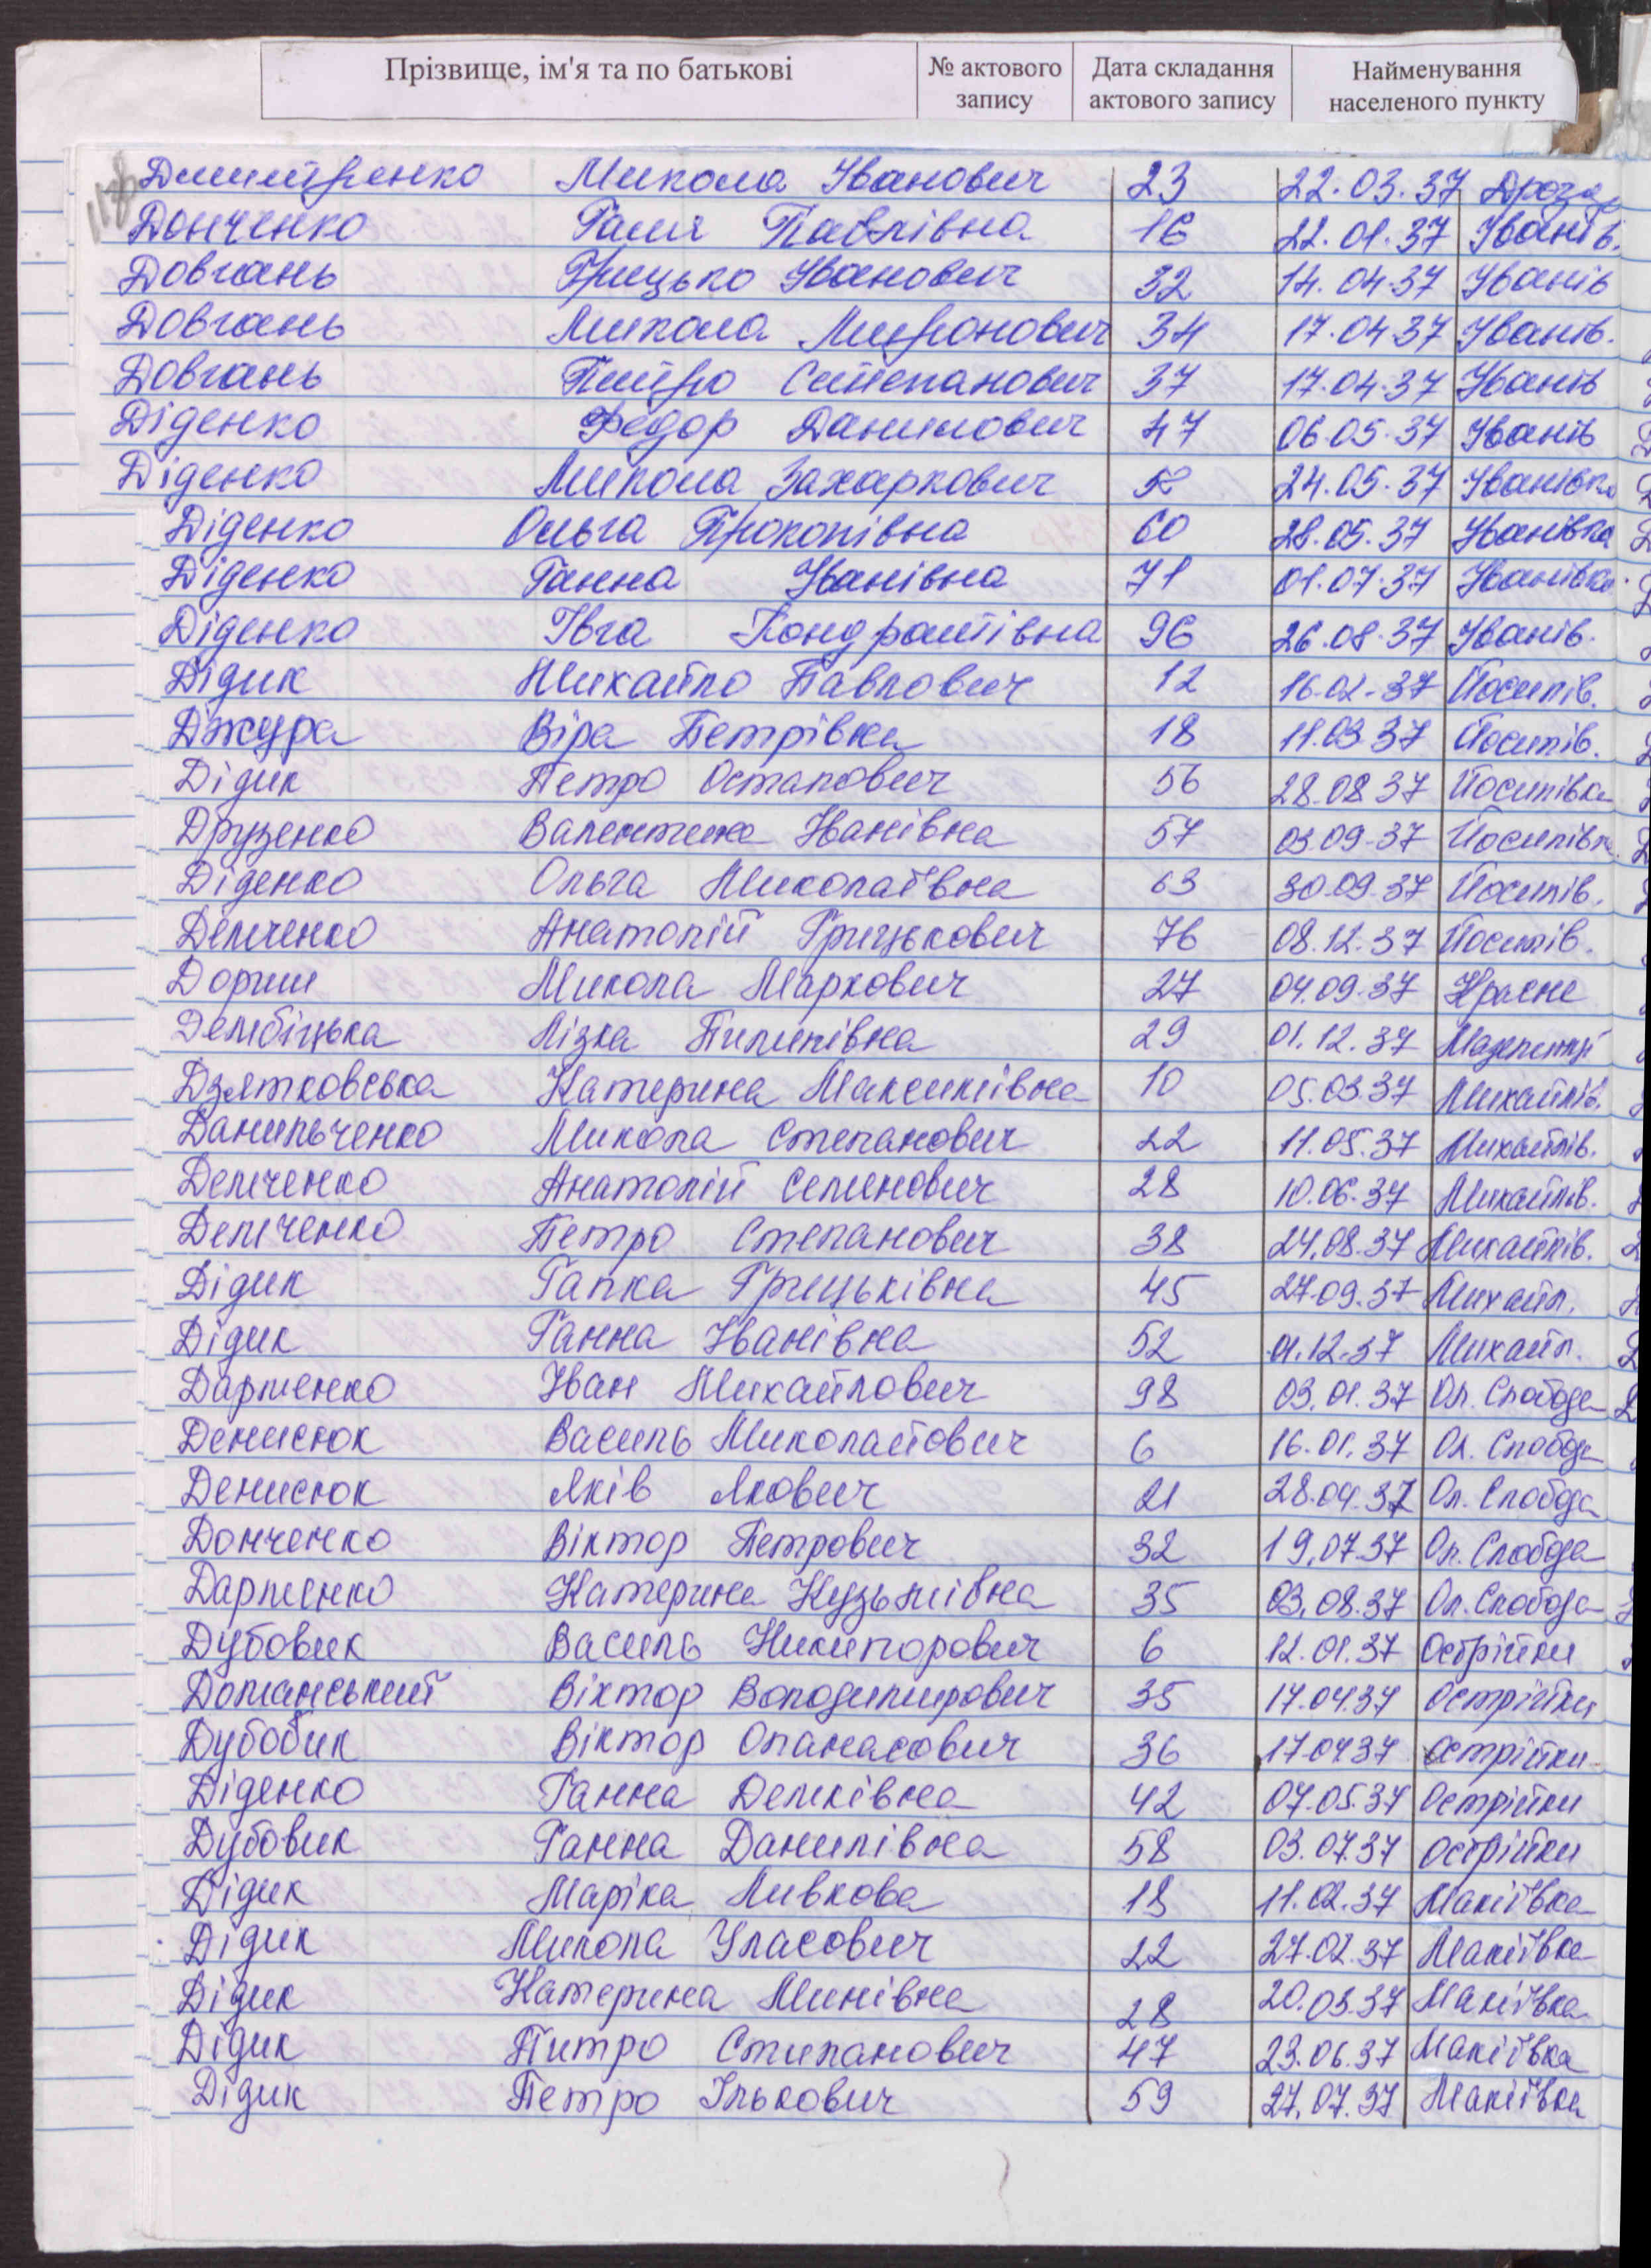 Прізвище, ім'я та по батькові № актового запису Дата складання актового запису Найменування населеного пункту
Дмитренко Микола Іванович 23 22.03.37
Донченко Галя Павлівна 16 22.01.37 Іванів.
Довгань Грицько Іванович 32 14.04.37 Іванів
Довгань Микола Миронович 34 17.04.37 Іванів.
Довгань Питро Степанович 37 17.04.37 Іванів
Діденко Федор Данилович 47 06.05.37 Іванів
Діденко Микола Захаркович 24.05.37 Іванівка
Діденко Ольга Прокопівна 60 28.05.37 Іванівка
Діденко Ганна Іванівна 71 01.07.37 Іванівка.
Діденко Івга Кондратівна 96 26.08.37 Іванів.
Дідик Михайло Павлович 12 16.02.37 Йосипів.
Джура Віра Петрівна 18 11.03.37 Йосипів.
Дідик Петро Остапович 56 28.08.37 Йосипівка
Друзенко Валентина Іванівна 57 03.09.37 Йосипівка
Діденко Ольга Миколаївна 63 30.09.37 Йосипів.
Демченко Анатолій Грицькович 76 08.12.37 Йосипів.
Дориш Микола Маркович 27 04.09.37 Красне
Дембіцька Лізка Пилипівна 29 01.12.37
Дзятковська Катерина Максимівна 10 05.03.37 Михайлів.
Данильченко Микола Степанович 22 11.05.37 Михайлів.
Демченко Анатолій Семенович 28 10.06.37 Михайлів.
Демченко Петро Степанович 38 24.08.37 Михайлів.
Дідик Гапка Грицьківна 45 27.09.37 Михайл.
Дідик Ганна Іванівна 52 01.12.37 Михайл.
Дарменко Іван Михайлович 98 03.01.37 Ол. Слобода
Денисюк Василь Миколайович 6 16.01.37 Ол. Слобода
Денисюк Яків Якович 21 28.04.37 Ол. Слобода
Донченко Віктор Петрович 32 19.07.37 Ол. Слобода
Дарменко Катерина Кузьмівна 35 03.08.37 Ол. Слобода
Дубовик Василь Никипорович 6 12.01.37 Острійки
Доманський Віктор Володимирович 35 17.04.37 Острійки
Дубовик Віктор Опанасович 36 17.04.37 Острійки
Діденко Ганна Демківна 42 07.05.37 Острійки
Дубовик Ганна Данилівна 58 03.07.37 Острійки
Дідик Маріка Ливкова 18 11.02.37 Макіївка
Дідик Микола Уласович 22 27.02.37 Макіївка
Дідик Катерина Минівна 28 20.03.37 Макіївка
Дідик Питро Стипанович 47 23.06.37 Макіївка
Дідик Петро Ількович 59 27.07.37 Макіївка